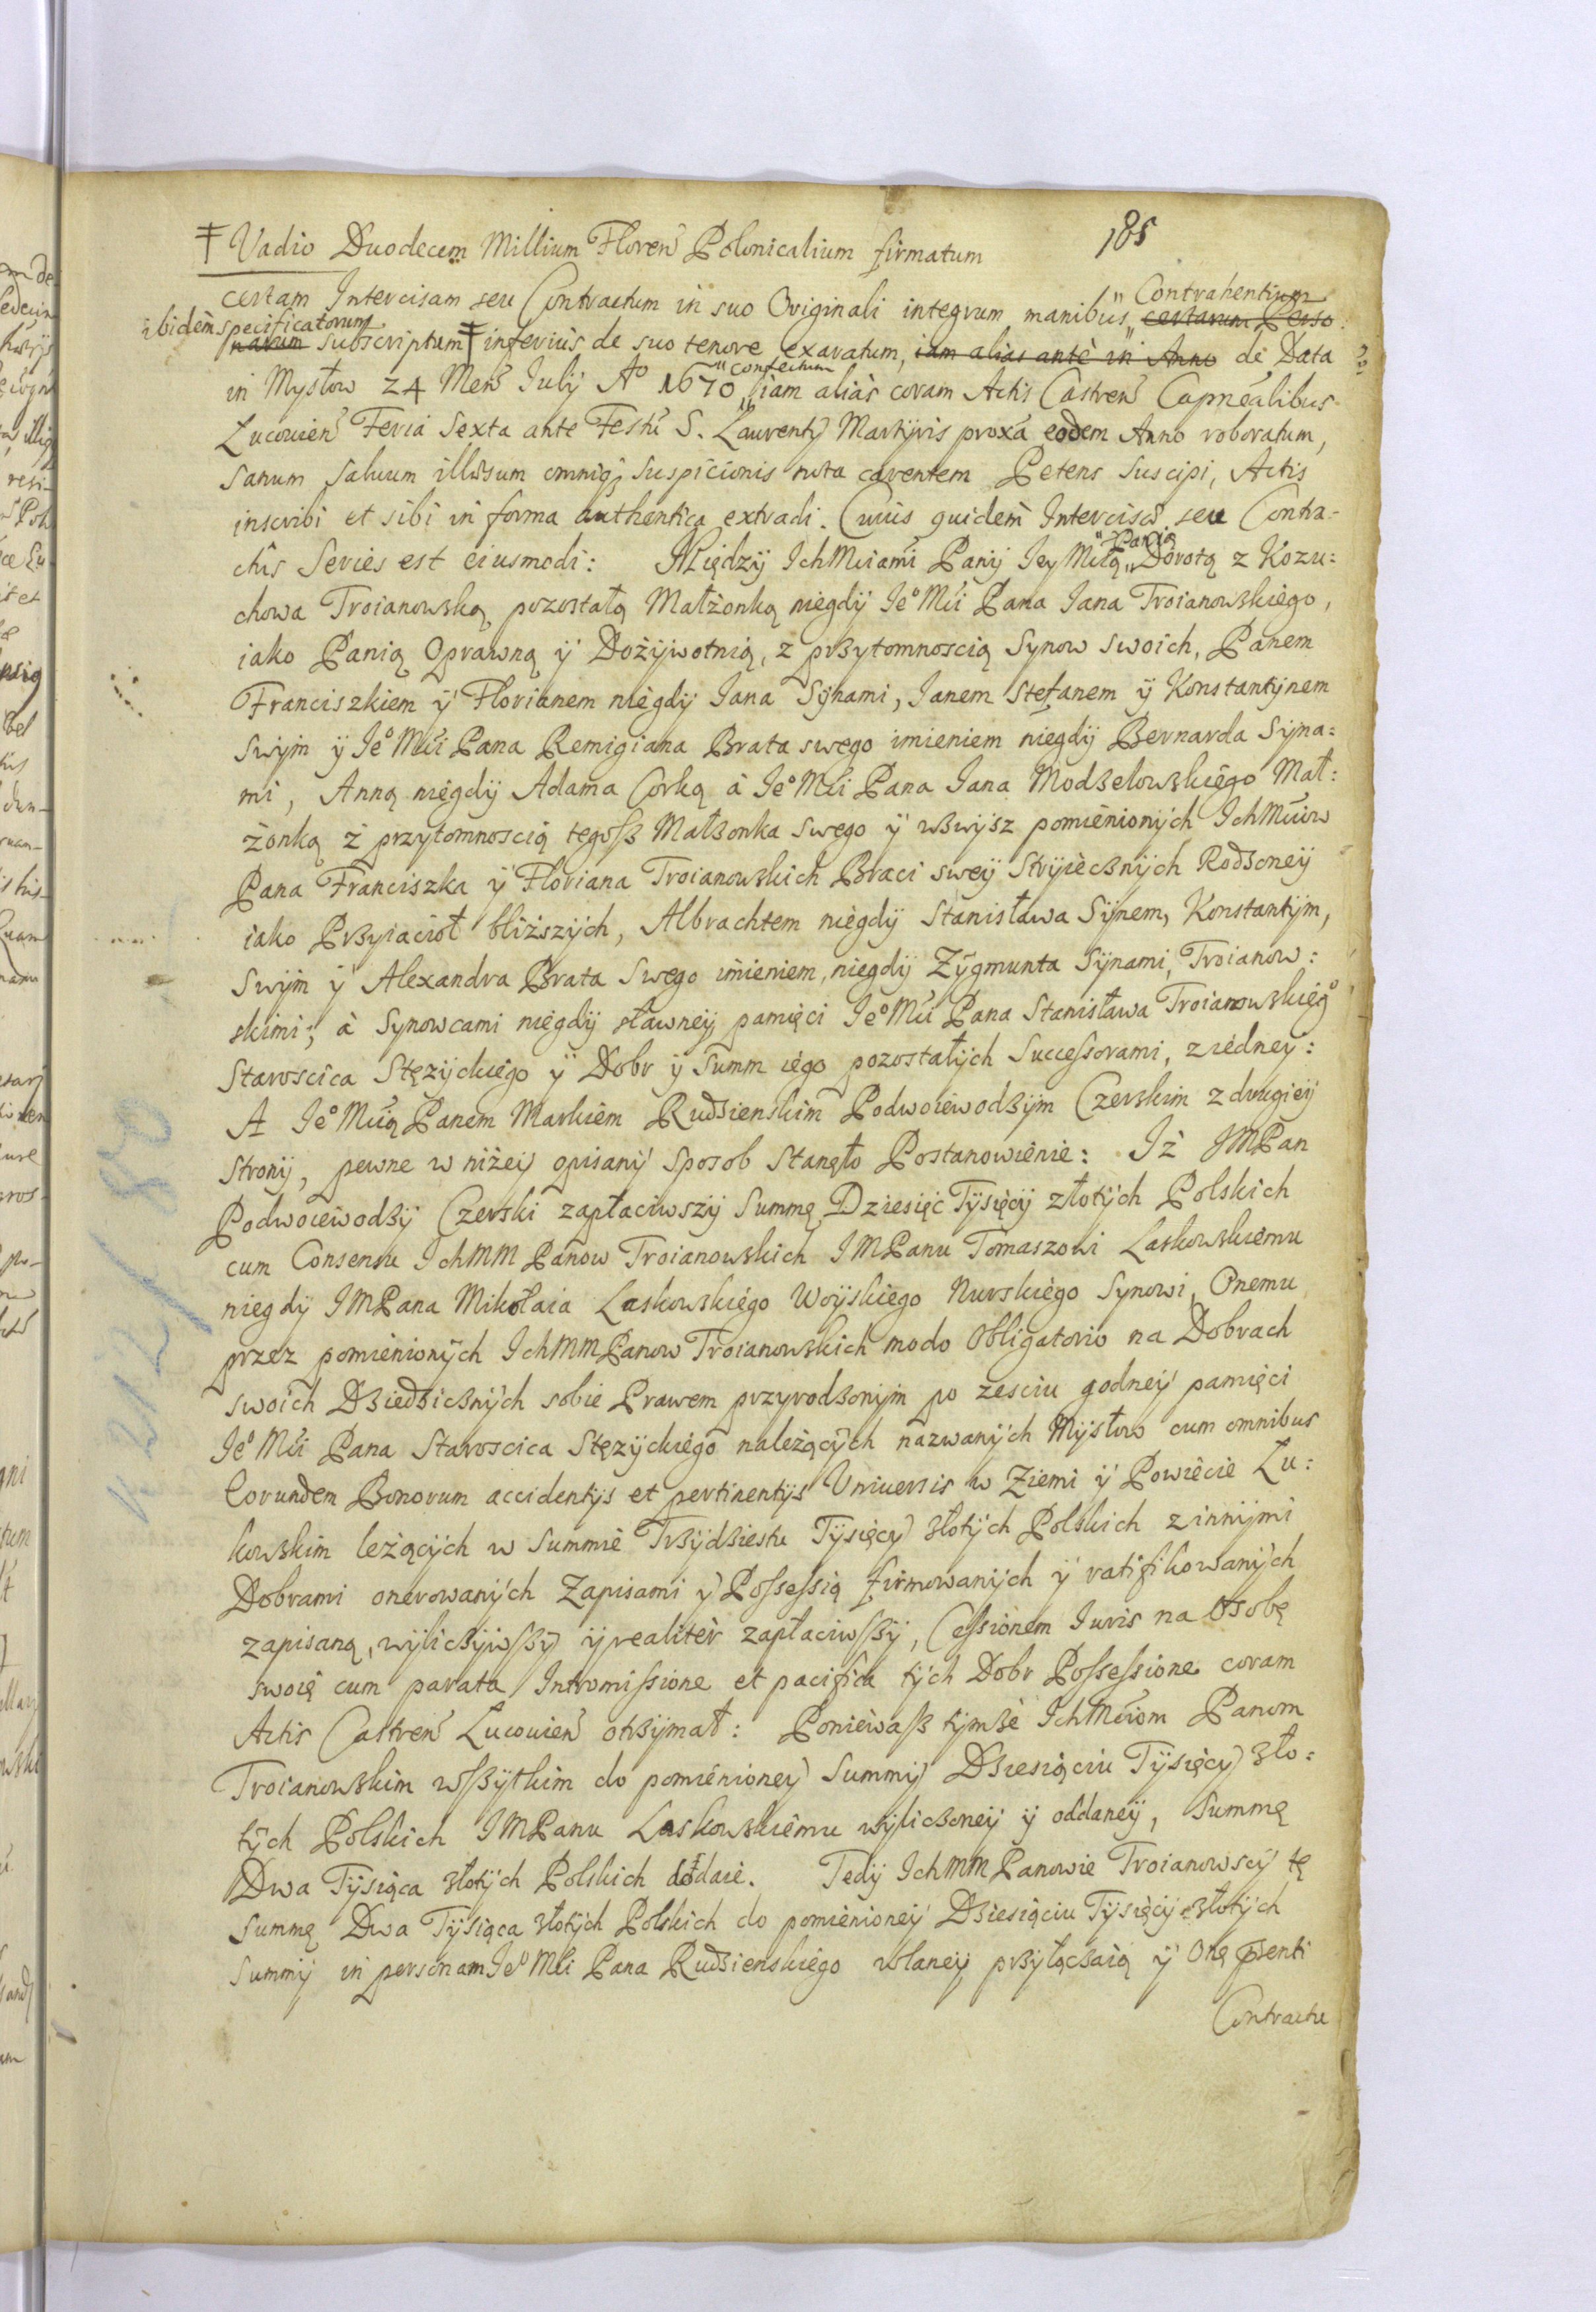 185
‡ Vadio Duodecem Millium Floren Polonicalium firmatum
certam Intercisam seu Contractum in suo Originali integrum manibus „ Contrahentium certarum Perso
ibidem specificatorum narum subscriptum ‡ inferius de suo tenore exaratum, iam alias ante in Anno de Data
in Mysłow 24 Men Iulij Aº 1670 „ confectum iam alias coram Actis Castren Capnealibus
Lucouien Feria Sexta ante Festu S. Laurentij Martyris proxa eodem Anno roboratum,
sanum saluum illæsum omniq; suspicionis nota carentem Petens suscipi, Actis
inscribi et sibi in forma authentica extradi. Cuius quidem Intercisæ seu Contra-
ctus Series est eiusmodi: Między IchMciami Panij Iey Mcią „ Panią Dorotą z Kozu:
chowa Troianowską pozostałą Małżonką niegdy Ieº Mci Pana Iana Troianowskiego,
iako Panią Oprawną ÿ Dożywotnią, z przytomnoscią Synow swoich, Panem
Franciszkiem ÿ Florianem niegdy Iana Synami, Ianem Stefanem ÿ Konstantynem
swym ÿ Ieº Mci Pana Remigiana Brata swego imieniem niegdy Bernarda Syna:
mi, Anną niegdy Adama Corką à Ieº Mci Pana Iana Modzelowskiego Mał:
żonką z przytomnoscią tegosz Małzonka swego ÿ wzwysz pomienionych IchMciow
Pana Franciszka ÿ Floriana Troianowskich Braci swey Stryiecznych Rodzoney
iako Przyiacioł bliższych, Albrachtem niegdy Stanisława Synem, Konstantym,
swym ÿ Alexandra Brata swego imieniem, niegdy Zygmunta Synami, Troianow:
skimi; à Synowcami niegdy sławney pamięci Ieº Mci Pana Stanisława Troianowskiegº
Staroscica Stężyckiego ÿ Dobr ÿ Summ iego pozostałych Successorami, z iedney:
A Ieº Mcią Panem Markiem Rudzienskim Podwoiewodzym Czerskim z drugiey
strony, pewne w niżey opisany sposob stanęło Postanowienie: Iż IMPan
Podwoiewodzy Czerski zapłaciwszy Summę Dziesięć Tysięcy złotych Polskich
cum Consensu IchMM Panow Troianowskich IMPanu Tomaszowi Laskowskiemu
niegdy IMPana Mikołaia Laskowskiego Woyskiego Nurskiego Synowi, Onemu
przez pomienionych IchMMPanow Troianowskich modo Obligatorio na Dobrach
swoich Dziedzicznych sobie Prawem przyrodzonym po zesciu godney pamięci
Ieº Mci Pana Staroscica Stężyckiego należących nazwanych Mysłow cum omnibus
Eorundem Bonorum accidentijs et pertinentijs Vniuersis w Ziemi ÿ Powiecie Łu:
kowskim leżących w Summie Trzydziestu Tysięcy złotych Polskich z innymi
Dobrami onerowanych Zapisami ÿ Possessią firmowanych ÿ ratifikowanych
zapisaną, wyliczywszy ÿ realiter zapłaciwszy, Cessionem Iuris na Osobę
swoię cum parata Intromissione et pacifica tych Dobr Possessione coram
Actis Castren Lucouien otrzymał: Ponieważ tymże IchMciom Panom
Troianowskim wszytkim do pomienioney Summy Dziesiąciu Tysięcy zło:
tych Polskich IMPanu Laskowskiemu wyliczoney ÿ oddaney, Summę
Dwa Tysiąca złotych Polskich dodaie. Tedy IchMM Panowie Troianowscy tę
summę Dwa Tysiąca złotych Polskich do pomienioney Dziesiąciu Tysięcy złotych
Summy in personam Ieº Mci Pana Rudzienskiego wlaney przyłączaią ÿ Onę pnti
Contractu